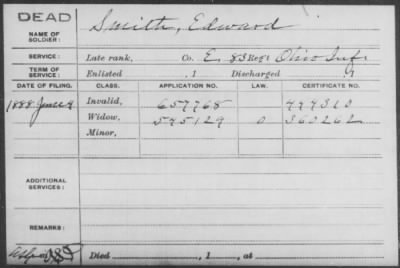 DEAD
NAME OF SOLDIER: Smith, Edward
SERVICE: Late rank, Co. E. 83 Reg't Ohio Inf.
TERM OF SERVICE: Enlisted , 1 Discharged , 1
DATE OF FILING. CLASS. APPLICATION NO. LAW. CERTIFICATE NO.
1888 June 4 Invalid, 657768 444310
Widow, 545129 0 360262
Minor,
ADDITIONAL SERVICES:
REMARKS:
Died , 1 , at